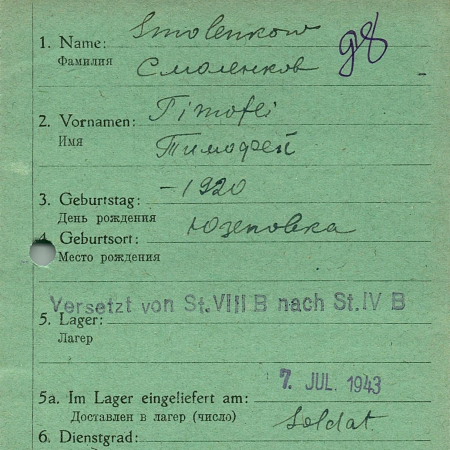 Smolenkow
1. Name:
98
Фамилия
Смоленков
Timofei
2. Vornamen:
Имя
Тимофей
3. Geburtstag: – 1920
День рождения
4. Geburtsort: Юзеповка
Место рождения
Versetzt von St. VIII B nach St. IV B
5. Lager:
Лагерь
7. JUL. 1943
5a. Im Lager eingeliefert am:
Доставлен в лагер (число)
Soldat.
6. Dienstgrad: